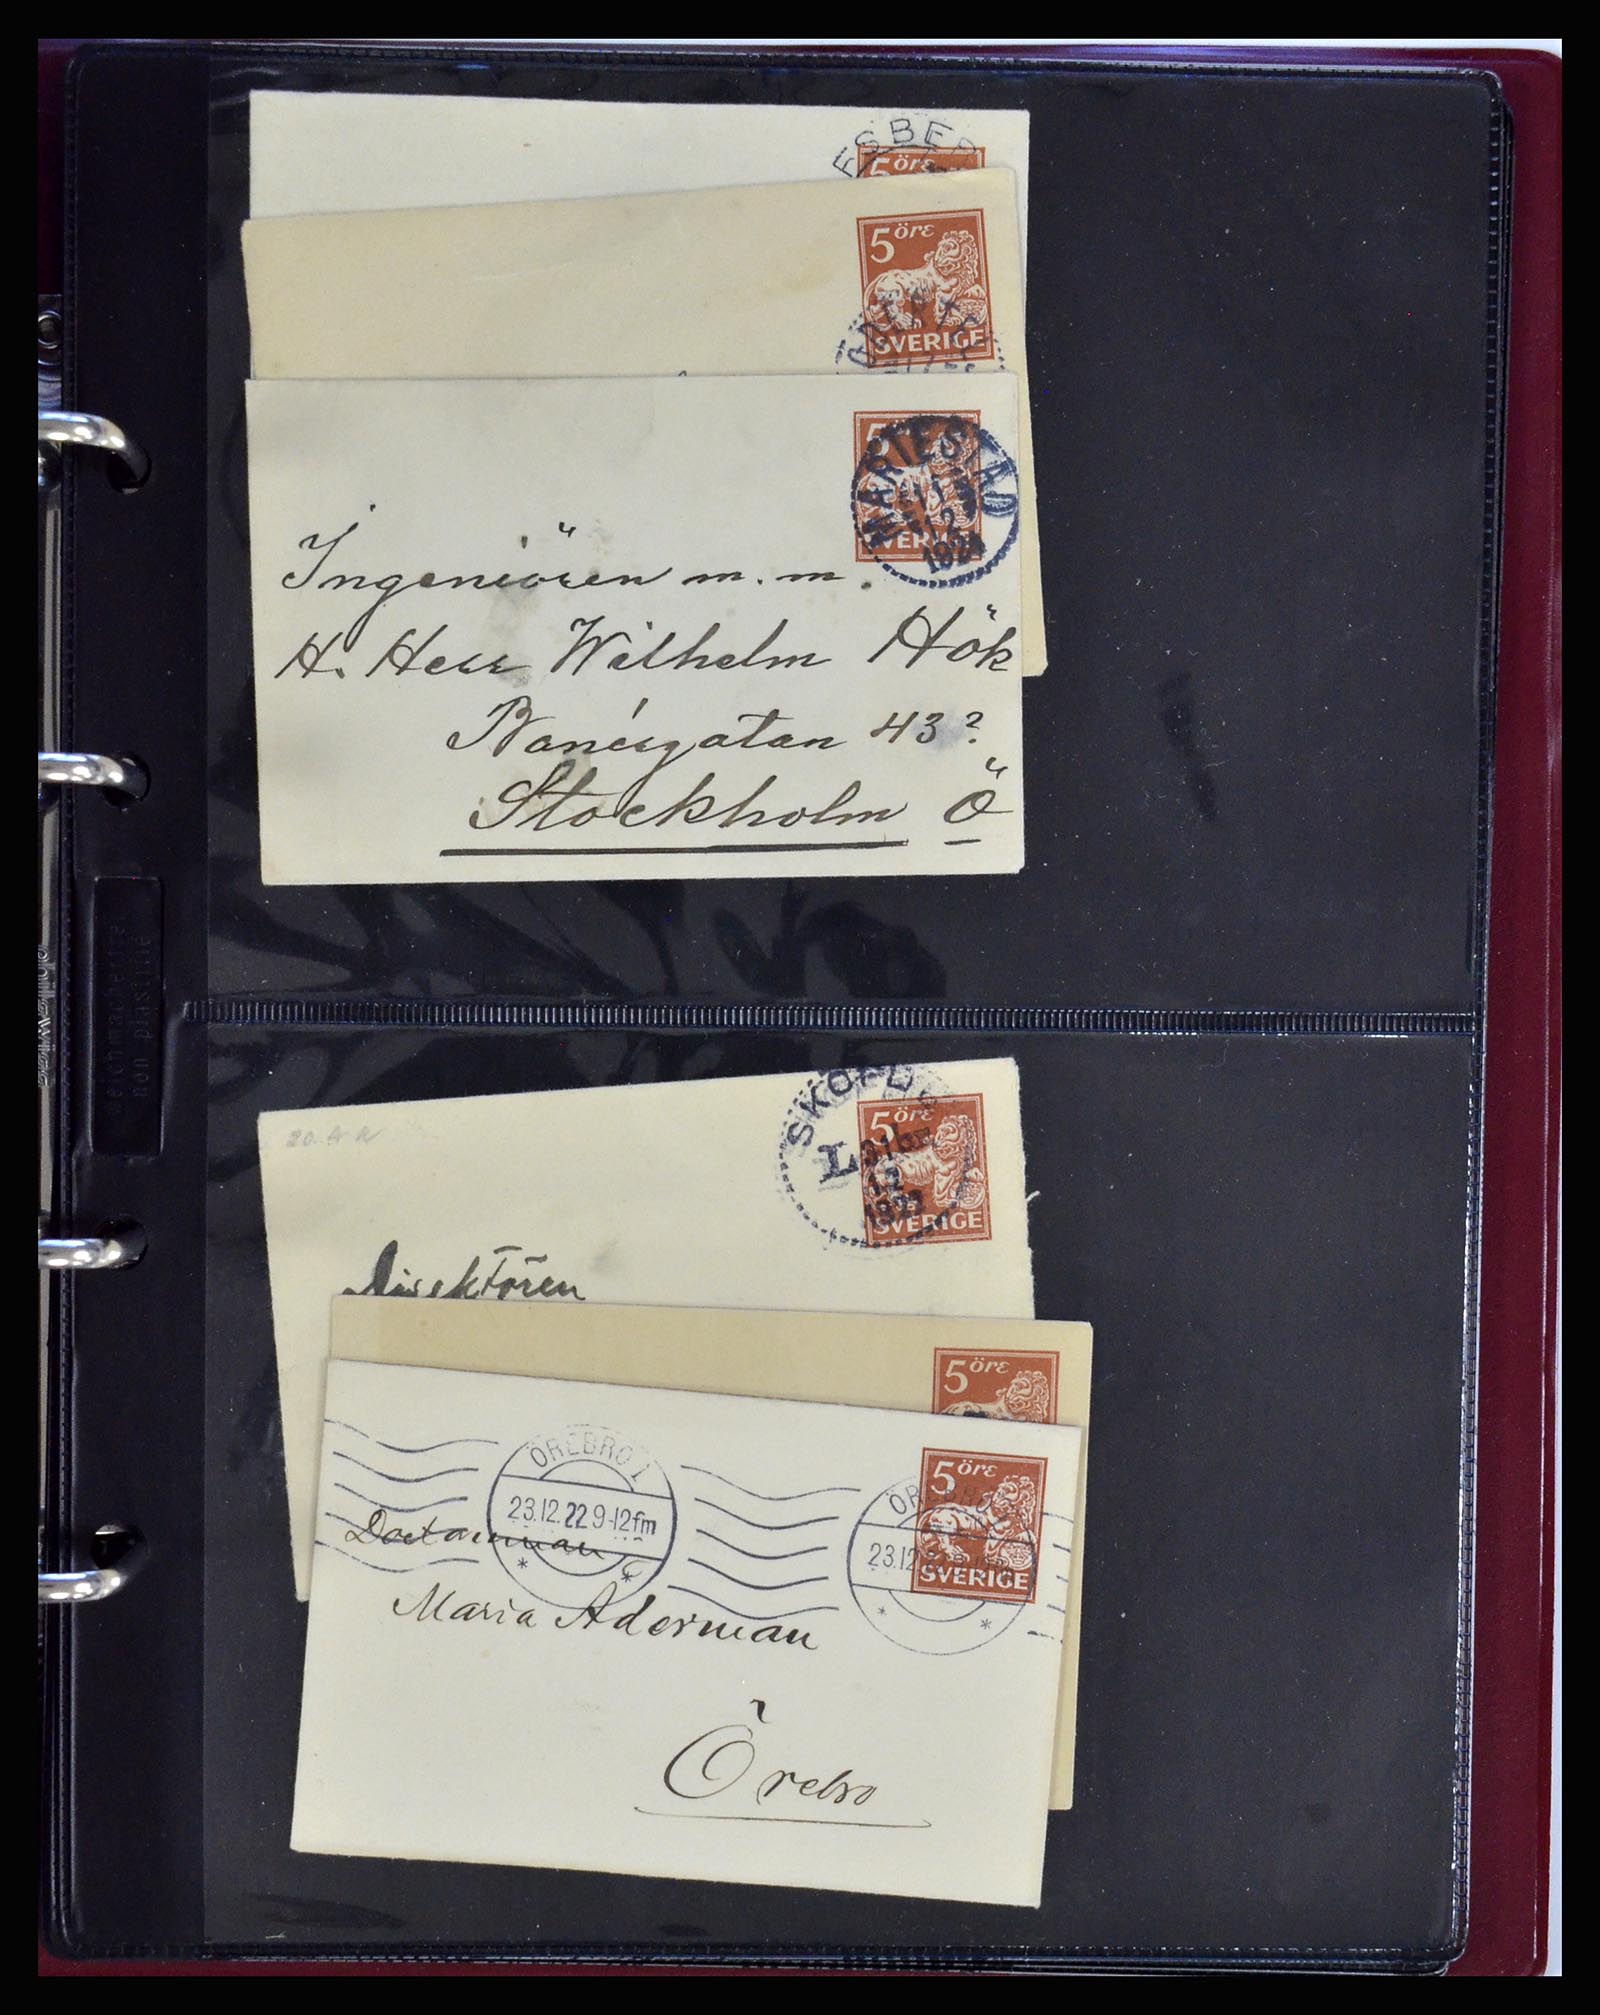 5 öre
5 öre
SVERIGE
MARIESTAD
11
12
1921
SVERIGE
Ingeniören m. m.
H. Herr Wilhelm Hök
Banérgatan 43?
Stockholm Ö
weichmacherfrei
non plastifié
SKÖLD
5 öre
L
12
SVERIGE
20 A R
Direktören
5 öre
ÖREBRO 1
23.12.22 9-12fm
5 öre
ÖREBRO 1
23.12
SVERIGE
Maria Aderman
Örebro